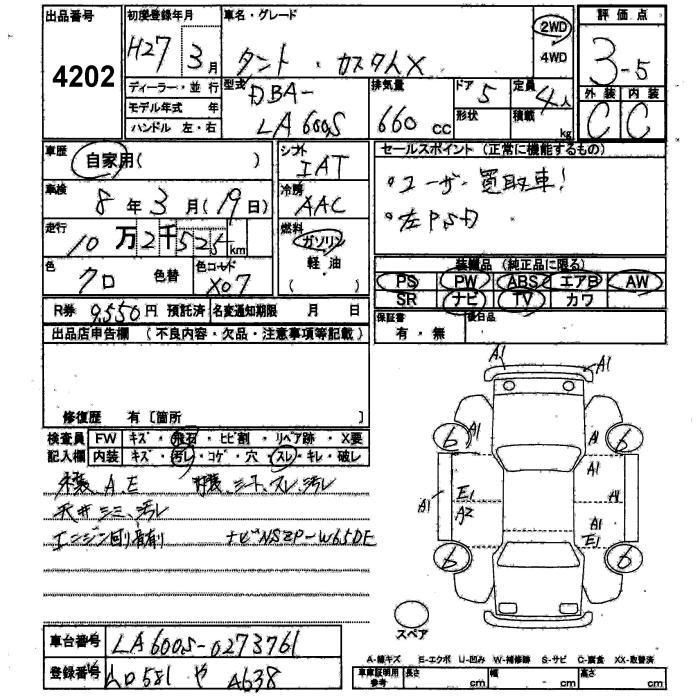 出品番号
4202
初度登録年月
H27年 3月
ディーラー・並 行
モデル年式 年
ハンドル 左・右
車名・グレード
タント ・ カスタムX
2WD
4WD
型式
DBA-
LA600S
排気量
660 CC
ドア 5
形状
定員 4人
積載 kg
評価点
3-5
外装 内装
C C
車歴
自家用( )
車検
8年 3月(19日)
走行
10万2千525km
色
クロ 色替
色コード
X07
シフト
IAT
冷房
AAC
燃料
ガソリン
軽・油
( )
セールスポイント (正常に機能するもの)
・ユーザー買取車!
・左PSD
装備品 (純正品に限る)
PS PW ABS エアB AW
SR ナビ TV カワ
保証書
有・無
後日品
R券 9,550円 預託済 名変通知期限 月 日
出品店申告欄 (不良内容・欠品・注意事項等記載)
修復歴 有〔箇所 〕
検査員 FW キズ・飛石・ヒビ割・リペア跡・X要
記入欄 内装 キズ・汚レ・コゲ・穴・スレ・キレ・破レ
A、E シート、スレ、汚レ
天井シミ、汚レ
ナビNSZP-W65DE
A1 A1
6 A1 A1 6
A1
A1 E1 A1
A2 A1
E1
6 6
スペア
A-線キズ E-エクボ U-凹み W-補修跡 S-サビ C-腐食 XX-取替済
車台番号 LA600S-0273761
登録番号 581 や A638
車庫証明用参考 長さ cm 幅 cm 高さ cm